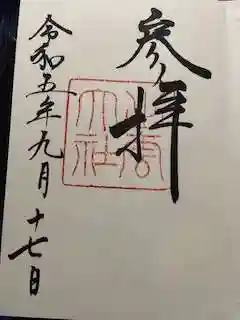 参拝
令和五年九月十七日